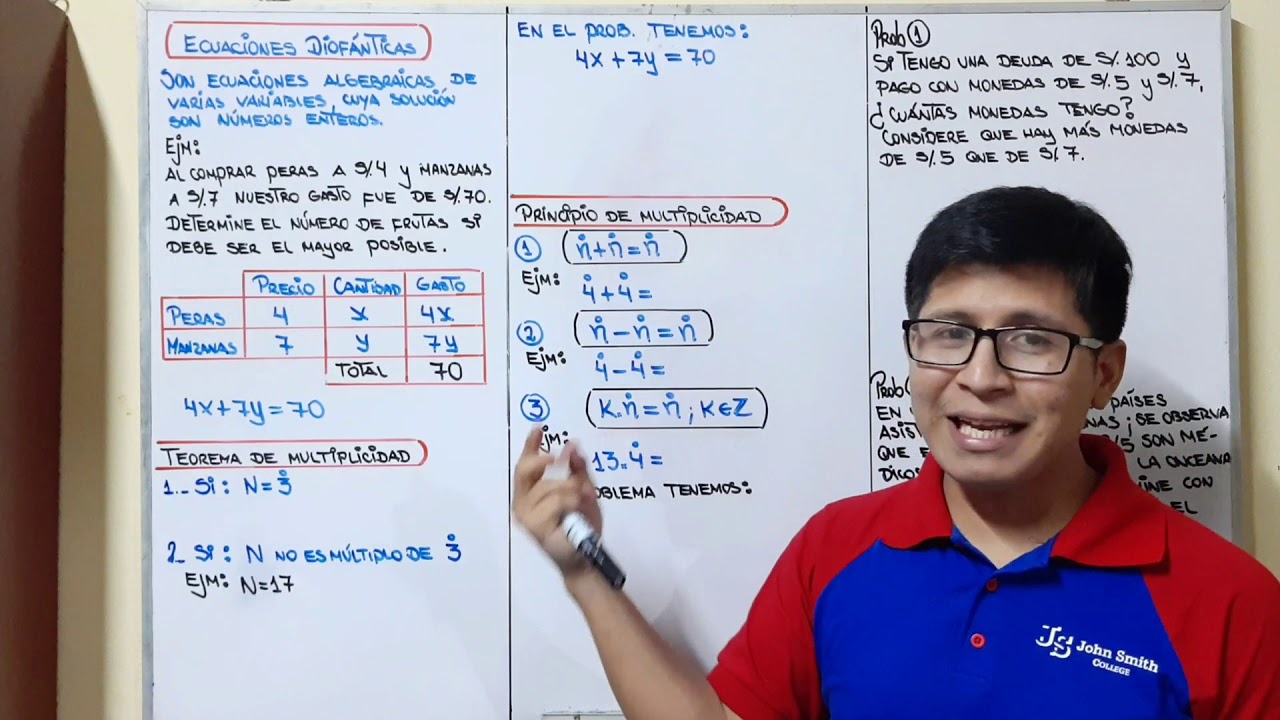 ECUACIONES DIOFÁNTICAS
SON ECUACIONES ALGEBRAICAS, DE
VARIAS VARIABLES, CUYA SOLUCIÓN
SON NÚMEROS ENTEROS.
EJM:
AL COMPRAR PERAS A S/.4 y MANZANAS
A S/.7 NUESTRO GASTO FUE DE S/.70.
DETERMINE EL NÚMERO DE FRUTAS SI
DEBE SER EL MAYOR POSIBLE.
PRECIO CANTIDAD GASTO
PERAS 4 x 4x
MANZANAS 7 y 7y
TOTAL 70
4x+7y=70
TEOREMA DE MULTIPLICIDAD
1.- Si: N=3̊
2. Si: N NO ES MÚLTIPLO DE 3̊
EJM: N=17
EN EL PROB. TENEMOS:
4x+7y=70
PRINCIPIO DE MULTIPLICIDAD
1 n̊+n̊=n̊
EJM: 4̊+4̊=
2 n̊-n̊=n̊
EJM: 4̊-4̊=
3 K.n̊=n̊; K∈Z
EJM:
13.4̊=
TENEMOS:
Prob 1
SI TENGO UNA DEUDA DE S/.100 y
PAGO CON MONEDAS DE S/.5 y S/.7,
¿CUÁNTAS MONEDAS TENGO?
CONSIDERE QUE HAY MÁS MONEDAS
DE S/.5 QUE DE S/.7.
Prob
EN PAÍSES
; SE OBSERVA
QUE /5 SON MÉ-
LA ONCEAVA
CON
EL
JS John Smith
COLLEGE